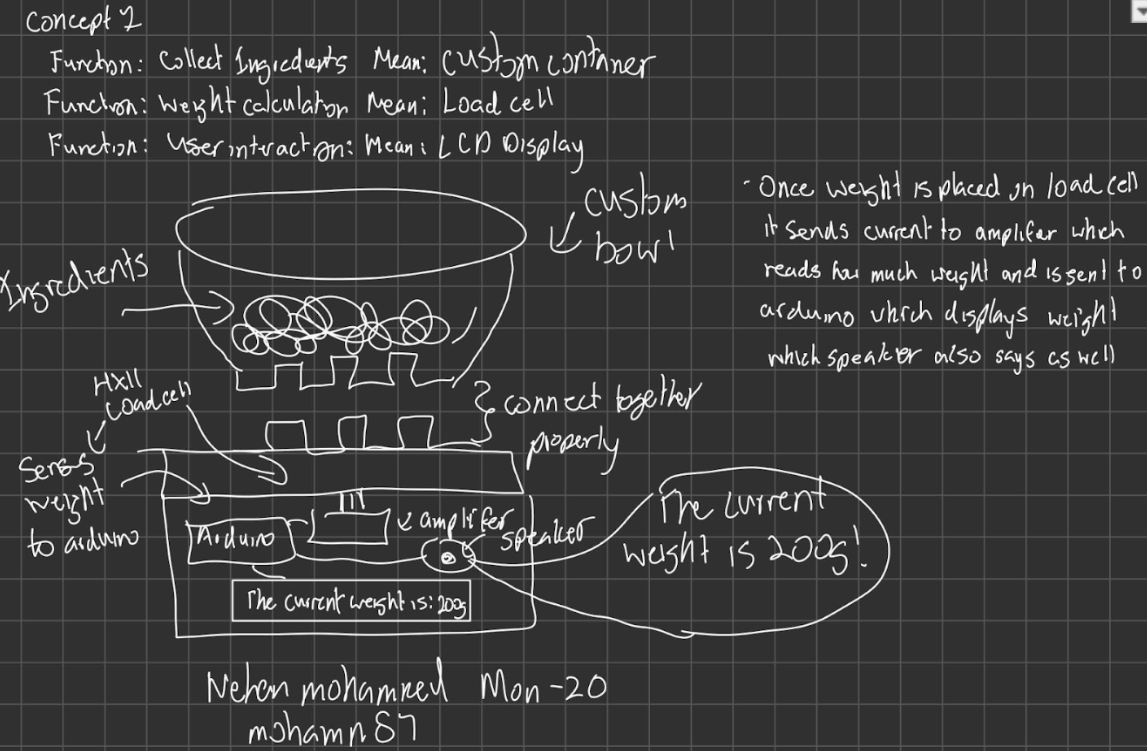 Concept 2
Function: Collect Ingredients Mean: custom container
Function: weight calculator Mean: Load cell
Function: User interaction: Mean: LCD Display
custom
bowl
- Once weight is placed on load cell
it sends current to amplifer which
reads how much weight and is sent to
arduino which displays weight
which speaker also says as well
Ingredients
HX11
Loadcell
connect together
properly
Sends
weight
to arduino
Arduino
amplifer
speaker
The current weight is: 200g
The current
weight is 200g!
mohamed Mon-20
mohamn87